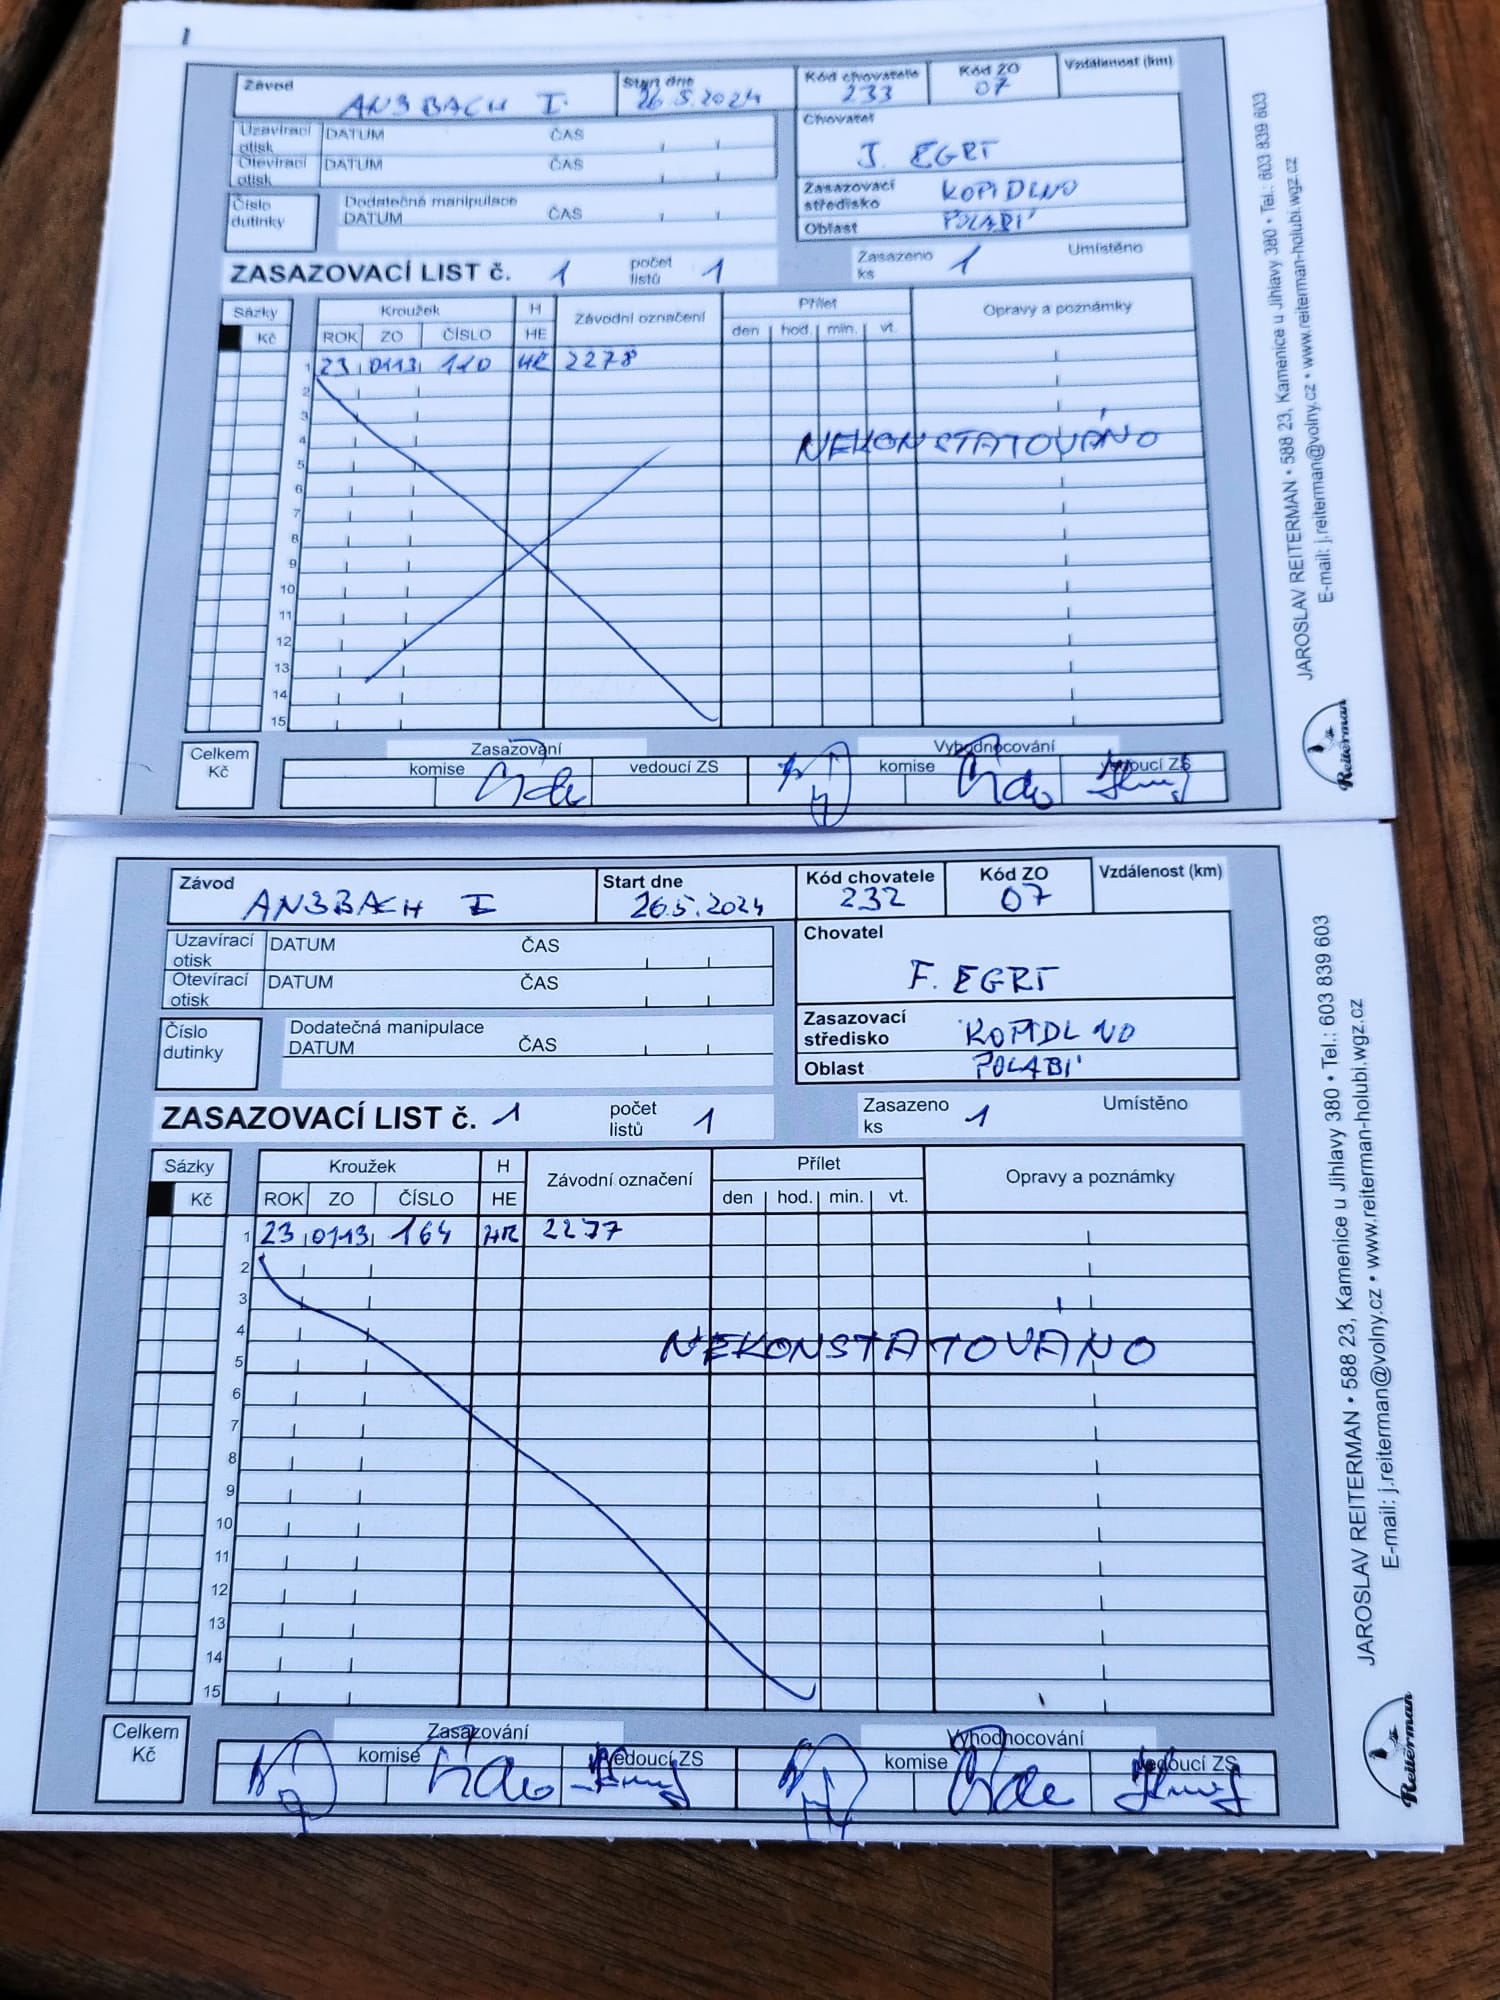 Závod ANSBACH I. Start dne 26.5.2024 Kód chovatele 233 Kód ZO 07 Vzdálenost (km)
Uzavírací otisk DATUM ČAS
Otevírací otisk DATUM ČAS
Chovatel J. EGRT
Číslo dutinky Dodatečná manipulace DATUM ČAS
Zasazovací středisko KOPIDLNO
Oblast POLABÍ
ZASAZOVACÍ LIST č. 1 počet listů 1 Zasazeno ks 1 Umístěno
Sázky Kroužek H Závodní označení Přílet Opravy a poznámky
Kč ROK ZO ČÍSLO HE den hod. min. vt.
1 23 0113 110 HR 2278
2
3
4 NEKONSTATOVÁNO
5
6
7
8
9
10
11
12
13
14
15
Celkem Kč Zasazování Vyhodnocování
komise vedoucí ZS komise vedoucí ZS
JAROSLAV REITERMAN • 588 23, Kamenice u Jihlavy 380 • Tel.: 603 839 603
E-mail: j.reiterman@volny.cz • www.reiterman-holubi.wgz.cz
Reiterman
Závod ANSBACH I Start dne 26.5.2024 Kód chovatele 232 Kód ZO 07 Vzdálenost (km)
Uzavírací otisk DATUM ČAS
Otevírací otisk DATUM ČAS
Chovatel F. EGRT
Číslo dutinky Dodatečná manipulace DATUM ČAS
Zasazovací středisko KOPIDLNO
Oblast POLABÍ
ZASAZOVACÍ LIST č. 1 počet listů 1 Zasazeno ks 1 Umístěno
Sázky Kroužek H Závodní označení Přílet Opravy a poznámky
Kč ROK ZO ČÍSLO HE den hod. min. vt.
1 23 0113 164 HR 2277
2
3
4 NEKONSTATOVÁNO
5
6
7
8
9
10
11
12
13
14
15
Celkem Kč Zasazování Vyhodnocování
komise vedoucí ZS komise vedoucí ZS
JAROSLAV REITERMAN • 588 23, Kamenice u Jihlavy 380 • Tel.: 603 839 603
E-mail: j.reiterman@volny.cz • www.reiterman-holubi.wgz.cz
Reiterman